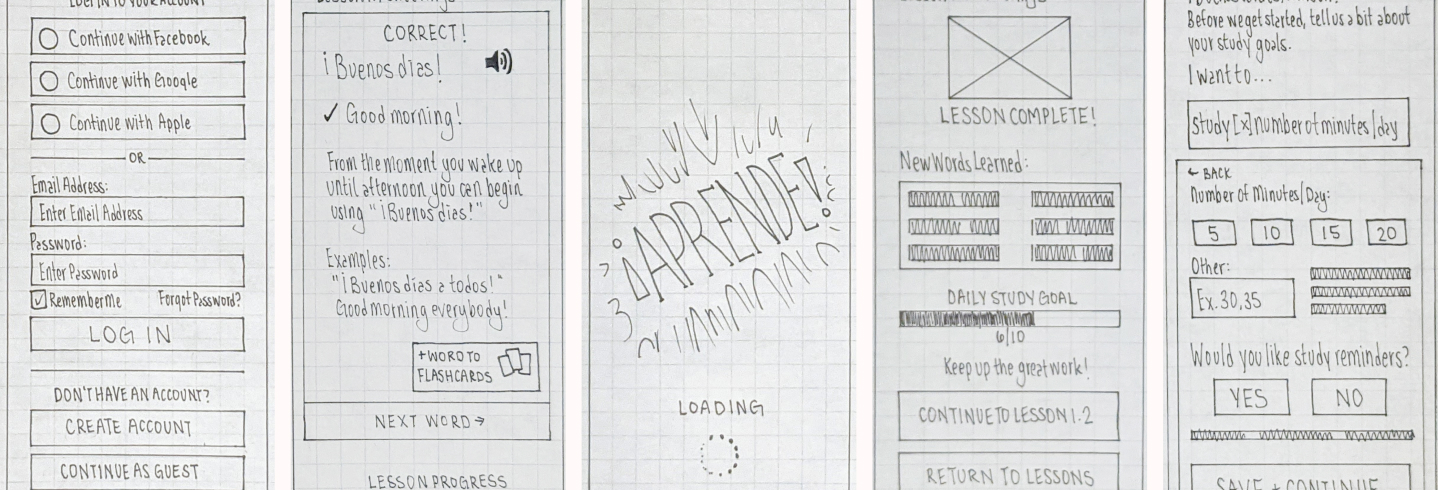 LOG IN TO YOUR ACCOUNT
Continue with Facebook
Continue with Google
Continue with Apple
OR
Email Address:
Enter Email Address
Password:
Enter Password
Remember Me
Forgot Password?
LOG IN
DON'T HAVE AN ACCOUNT?
CREATE ACCOUNT
CONTINUE AS GUEST
CORRECT!
¡Buenos días!
✓ Good morning!
From the moment you wake up
until afternoon you can begin
using "¡Buenos días!"
Examples:
"¡Buenos días a todos!"
Good morning everybody!
+ WORD TO
FLASHCARDS
NEXT WORD →
LESSON PROGRESS
¡APRENDE!
LOADING
LESSON COMPLETE!
New Words Learned:
DAILY STUDY GOAL
6/10
Keep up the great work!
CONTINUE TO LESSON 1.2
RETURN TO LESSONS
Before we get started, tell us a bit about
your study goals.
I want to...
Study [x] number of minutes / day
← BACK
Number of Minutes/Day:
5
10
15
20
Other:
Ex. 30, 35
Would you like study reminders?
YES
NO
SAVE + CONTINUE